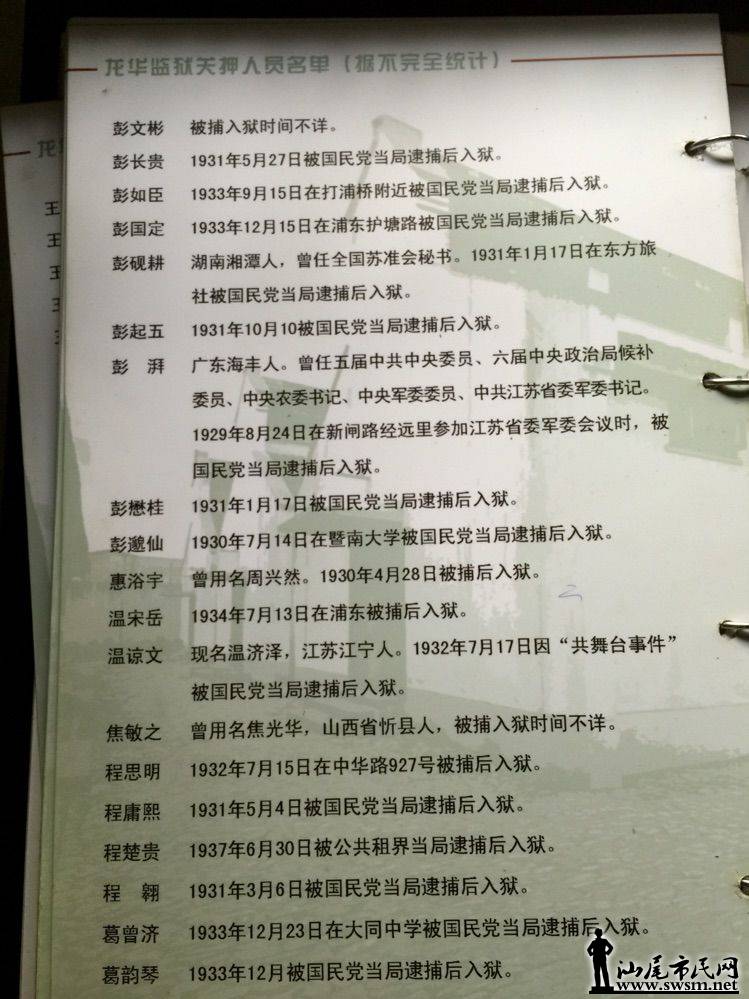 龙华监狱关押人员名单（据不完全统计）
彭文彬 被捕入狱时间不详。
彭长贵 1931年5月27日被国民党当局逮捕后入狱。
彭如臣 1933年9月15日在打浦桥附近被国民党当局逮捕后入狱。
彭国定 1933年12月15日在浦东护塘路被国民党当局逮捕后入狱。
彭砚耕 湖南湘潭人，曾任全国苏准会秘书。1931年1月17日在东方旅
社被国民党当局逮捕后入狱。
彭起五 1931年10月10被国民党当局逮捕后入狱。
彭 湃 广东海丰人。曾任五届中共中央委员、六届中央政治局候补
委员、中央农委书记、中央军委委员、中共江苏省委军委书记。
1929年8月24日在新闸路经远里参加江苏省委军委会议时，被
国民党当局逮捕后入狱。
彭懋桂 1931年1月17日被国民党当局逮捕后入狱。
彭邈仙 1930年7月14日在暨南大学被国民党当局逮捕后入狱。
惠浴宇 曾用名周兴然。1930年4月28日被捕后入狱。
温宋岳 1934年7月13日在浦东被捕后入狱。
温谅文 现名温济泽，江苏江宁人。1932年7月17日因“共舞台事件”
被国民党当局逮捕后入狱。
焦敏之 曾用名焦光华，山西省忻县人，被捕入狱时间不详。
程思明 1932年7月15日在中华路927号被捕后入狱。
程庸熙 1931年5月4日被国民党当局逮捕后入狱。
程楚贵 1937年6月30日被公共租界当局逮捕后入狱。
程 翱 1931年3月6日被国民党当局逮捕后入狱。
葛曾济 1933年12月23日在大同中学被国民党当局逮捕后入狱。
葛韵琴 1933年12月被国民党当局逮捕后入狱。
龙
王
王
王
王
汕尾市民网
www.swsm.net